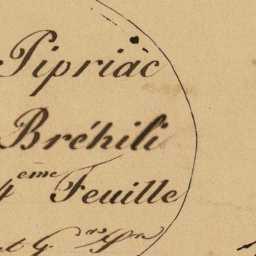 Pipriac
Bréhili
4eme Feuille